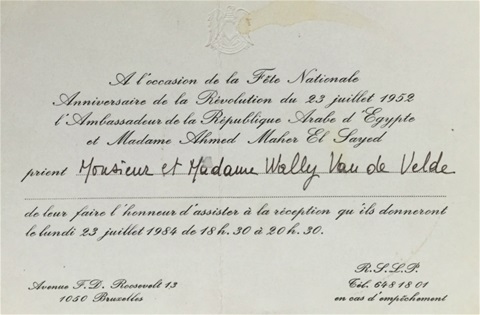 A l'occasion de la Fête Nationale
Anniversaire de la Révolution du 23 juillet 1952
l'Ambassadeur de la République Arabe d'Egypte
et Madame Ahmed Maher El Sayed
prient Monsieur et Madame Wally Van de Velde
de leur faire l'honneur d'assister à la réception qu'ils donneront
le lundi 23 juillet 1984 de 18 h. 30 à 20 h. 30.
Avenue F. D. Roosevelt 13
1050 Bruxelles
R. S. L. P.
Tél. 648 18 01
en cas d'empêchement